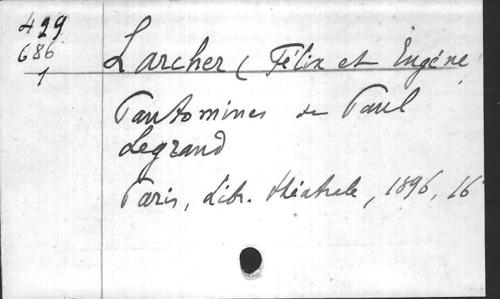 429
686
1
Larcher (Félix et Eugène
Pantomimes de Paul
Legrand
Paris, Libr. théatrale, 1896, 16